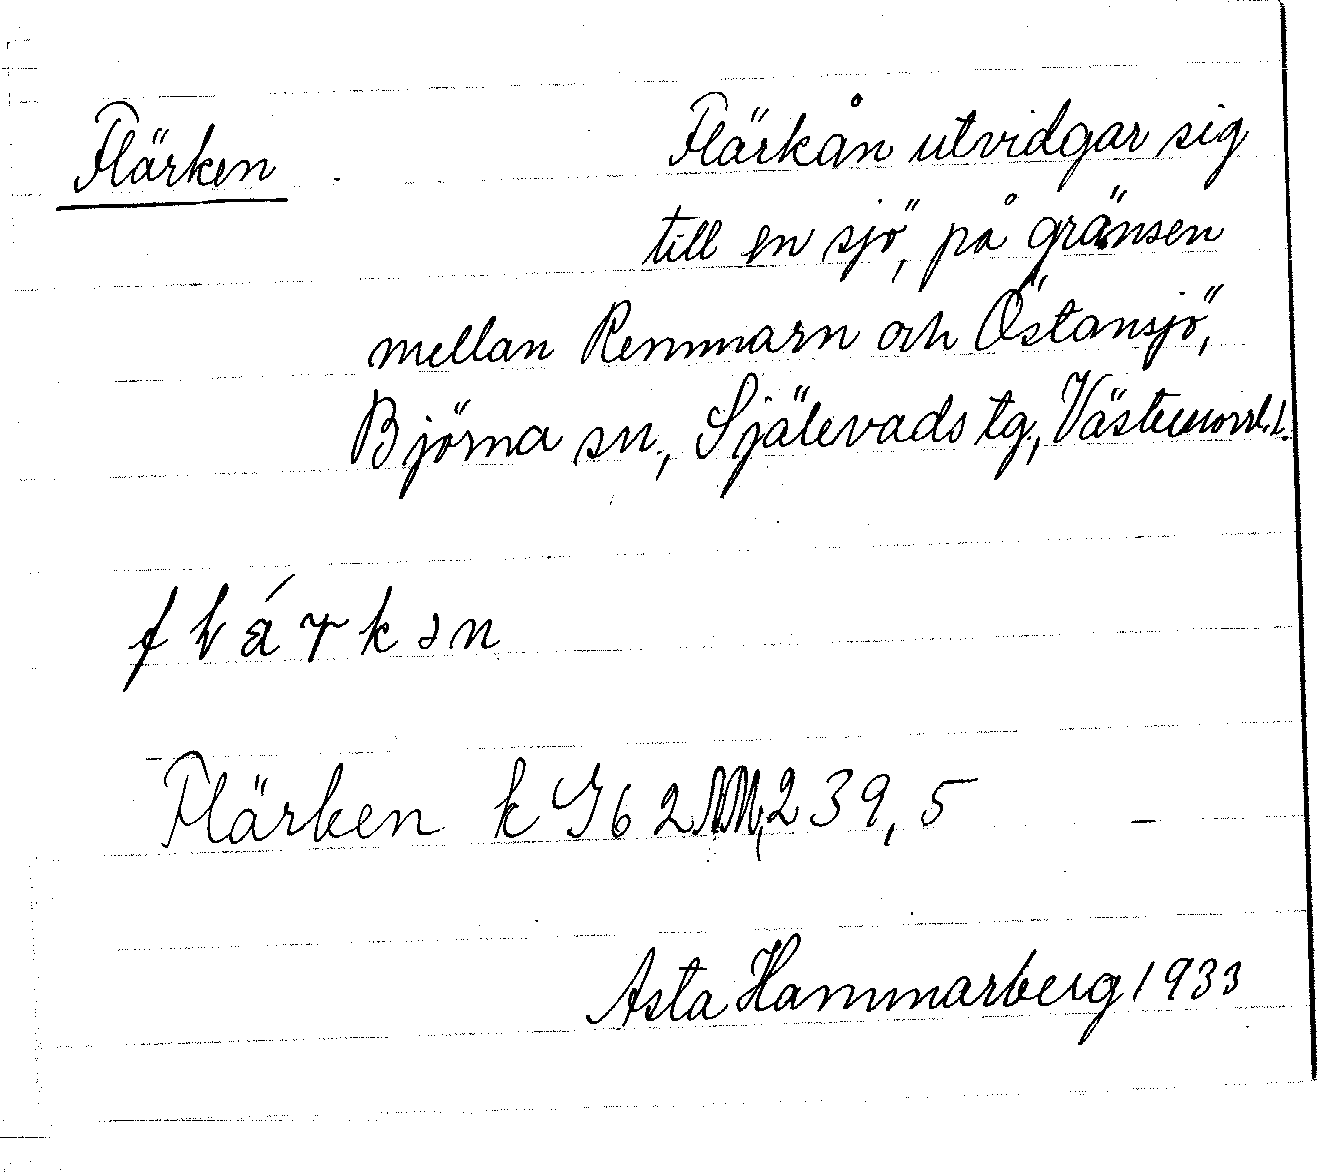 Flärken
Flärkån utvidgar sig
till en sjö, på gränsen
mellan Remmarn och Östansjö,
Björna sn., Själevads tg., Västernorrl. L.
Flärken k 239,5
Asta Hammarberg 1933